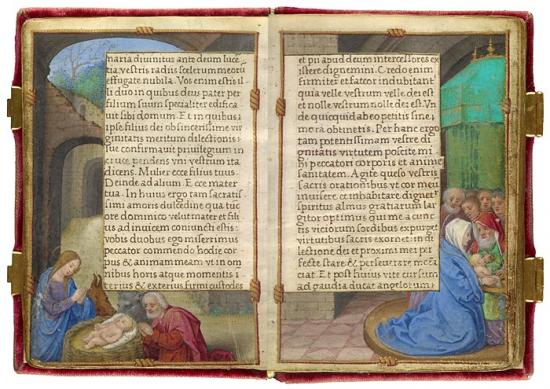 naria diuinitus ante deum luce
tia, vestris radiis scelerum meoru
effugate nubila. Vos enim estis il
li duo in quibus deus pater per
filium suum specialiter edifica
uit sibi domum. Et in quibus i
ipse filius dei ob sincerissime vir
ginitatis meritum dilectionis s
sue confirmauit priuilegium in
cruce pendens vni vestrum ita
dicens. Mulier ecce filius tuus.
Deinde ad alium. Ecce mater
tua. In huius ergo tam sacratis
simi amoris dulcedine qua tuc
ore dominico velut mater et fili
us ad inuicem coniuncti estis:
vobis duobus ego miserrimus
peccator commendo hodie cor
pus & animam meam vt in om
nibus horis atque momentis i
terius & exterius firmi custodes
et pii apud deum intercessores ex
istere dignemini. Credo enim
firmiter et fateor indubitanter
quia velle vestrum velle dei est
et nolle vestrum nolle dei est. Vn
de quicquid ab eo petitis sine
mora obtinetis. Per hanc ergo
tam potentissimam vestre di
gnitatis virtutem poscite mi
hi peccatori corporis et anime
sanitatem. Agite queso vestris
sacris orationibus vt cor meu
inuisere et inhabitare dignet
spiritus almus gratiarum lar
gitor optimus qui me a cunc
tis viciorum sordibus expurget
virtutibus sacris exornet: in di
lectione dei et proximi mei per
fecte stare & perseuerare me
ciat. Et post huius vite cursum
ad gaudia ducat angelorum: